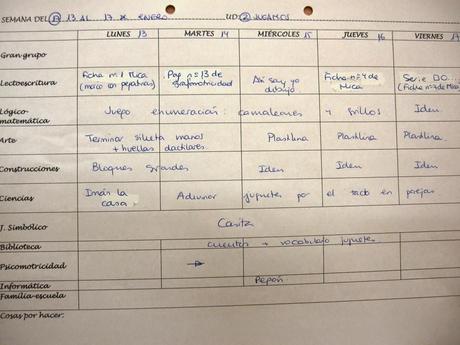 SEMANA DEL 13 AL 17 DE ENERO UD: 2 JUGAMOS
LUNES 13 MARTES 14 MIÉRCOLES 15 JUEVES 16 VIERNES 17
Gran grupo
Lectoescritura Ficha nº 1 Mica Pag nº 13 de Así soy yo Ficha nº 4 de Serie D.O.
(marco con pegatinas) grafomotricidad dibujo Mica (Ficha nº 4 de Mica)
Lógico- Juego enumeración: camaleones y grillos Iden
matemática
Arte Terminar silueta manos Plastilina Plastilina Plastilina
+ huellas dactilares
Construcciones Bloques grandes Iden Iden Iden
Ciencias Imán la Adivinar juguetes por el tacto en parejas
casa
J. Simbólico Casita
Biblioteca cuentos + vocabulario juguetes
Psicomotricidad
Informática Pepón
Familia-escuela
Cosas por hacer: